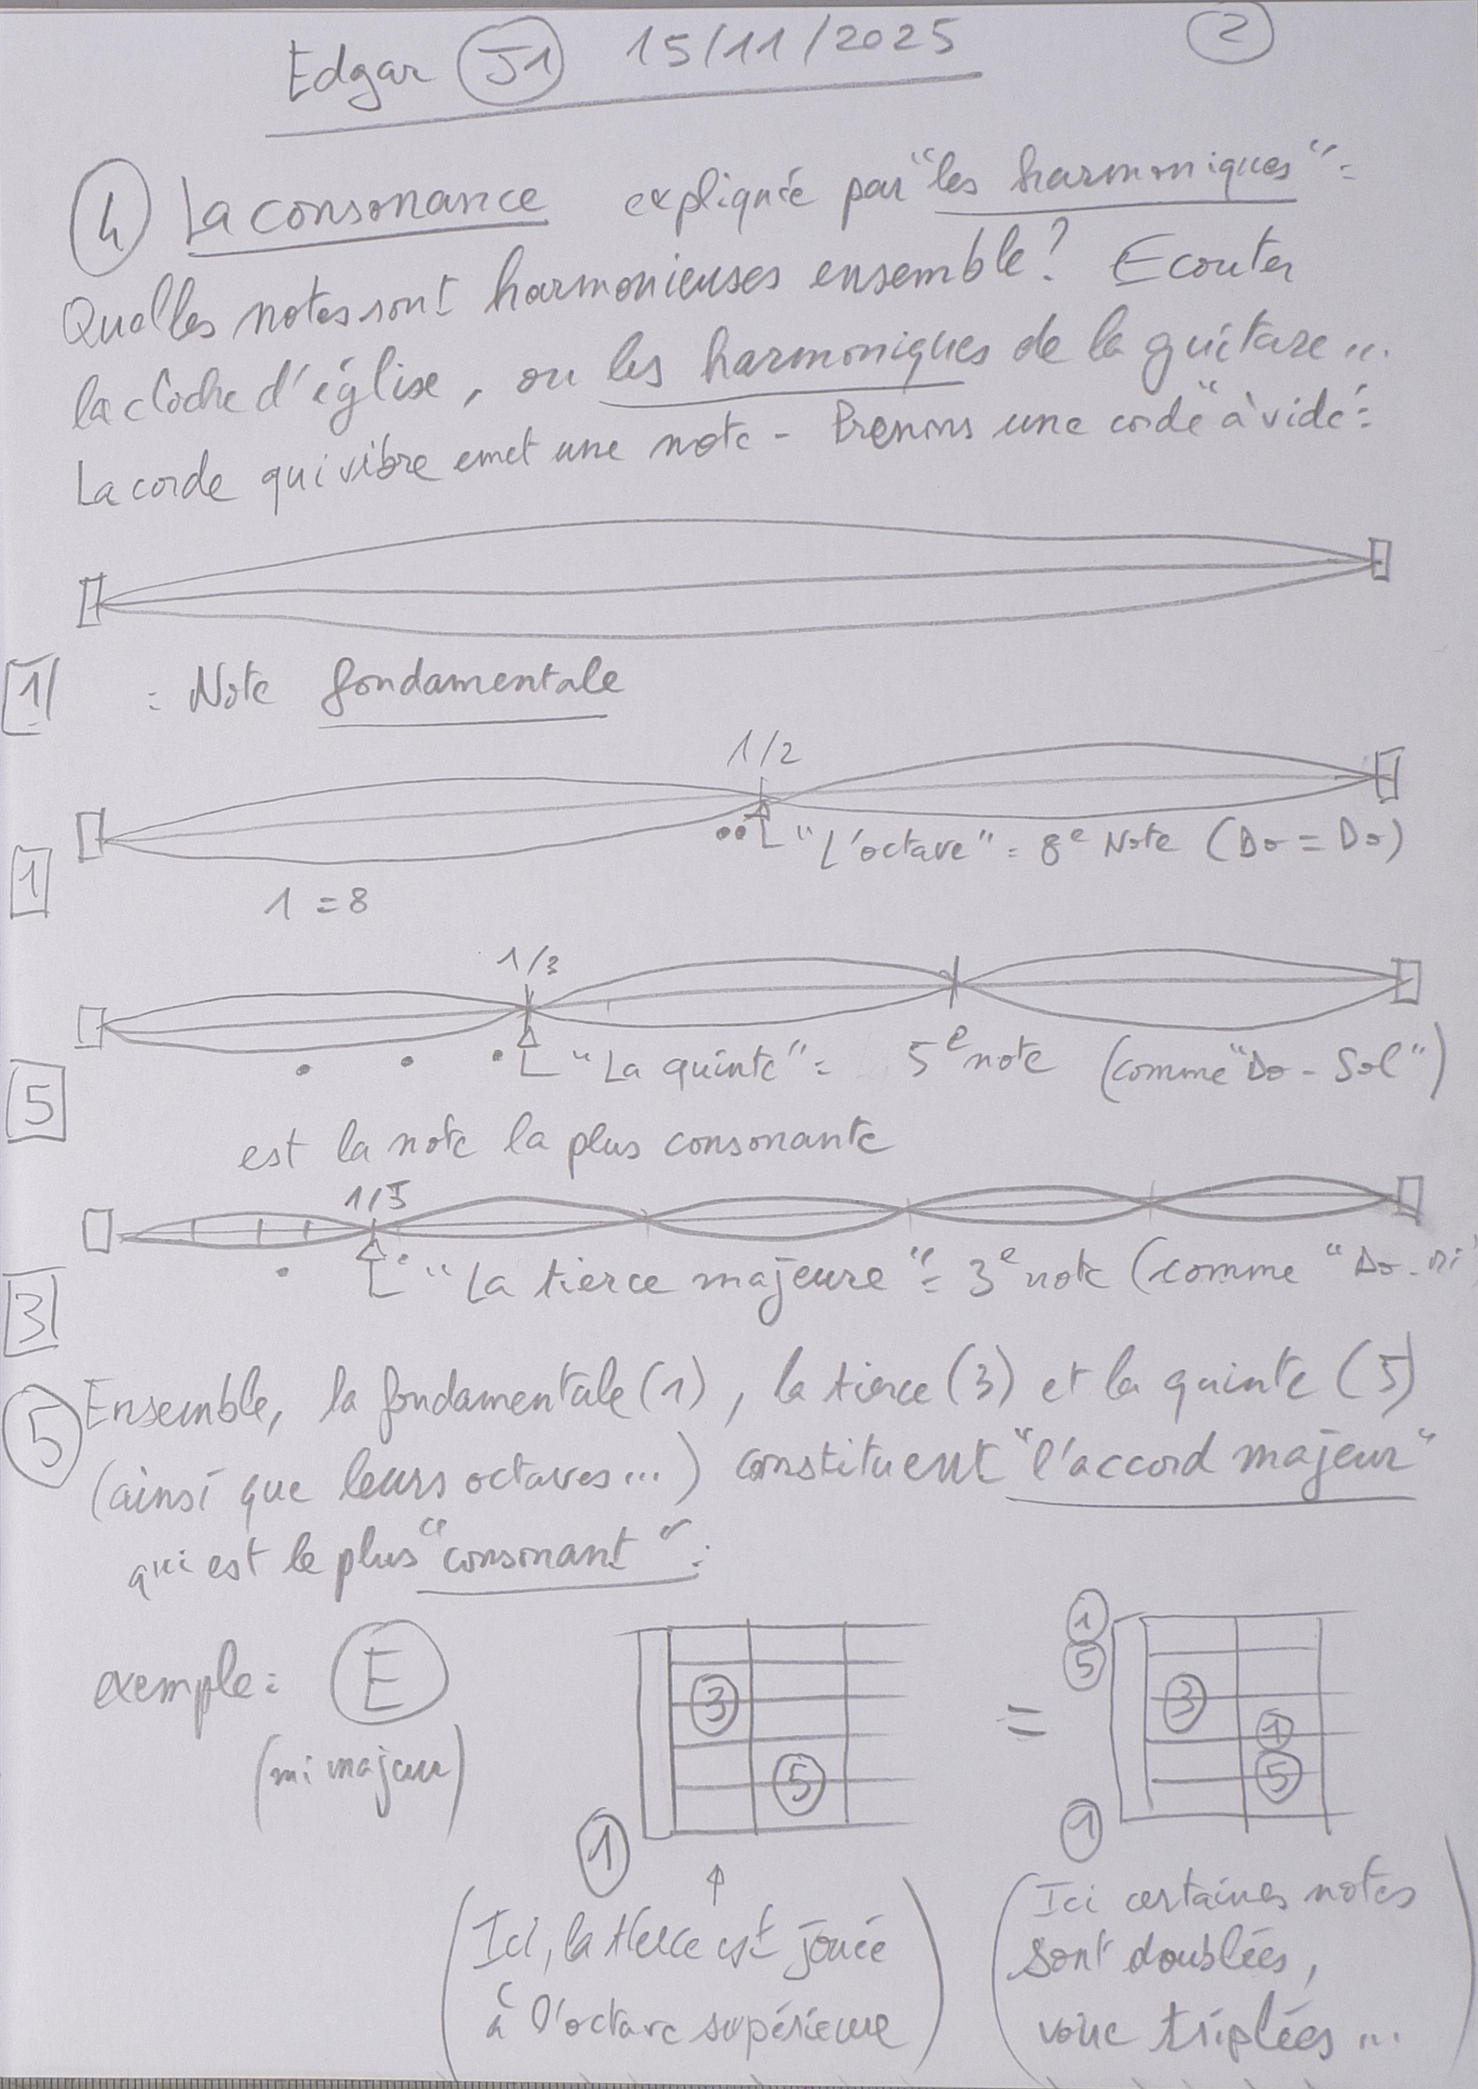 Edgar J1 15/11/2025 2
4 La consonance expliquée par "les harmoniques" :
Quelles notes sont harmonieuses ensemble ? Ecouter
la cloche d'église, ou les harmoniques de la guitare ...
La corde qui vibre emet une note - Prenons une corde "à vide" :
1 : Note fondamentale
1/2
"L'octave" = 8e Note (Do = Do)
1
1 = 8
1/3
"La quinte" = 5e note (comme "Do - Sol")
5
est la note la plus consonante
1/5
"La tierce majeure" = 3e note (comme "Do - Mi"
3
5 Ensemble, la fondamentale (1), la tierce (3) et la quinte (5)
(ainsi que leurs octaves ...) constituent "l'accord majeur"
qui est le plus "consonant" :
exemple : E
(mi majeur)
3
5
1
=
1
5
3
1
5
1
(Ici, la tierce est jouée
à l'octave supérieure)
(Ici certaines notes
sont doublées,
voire triplées ...)